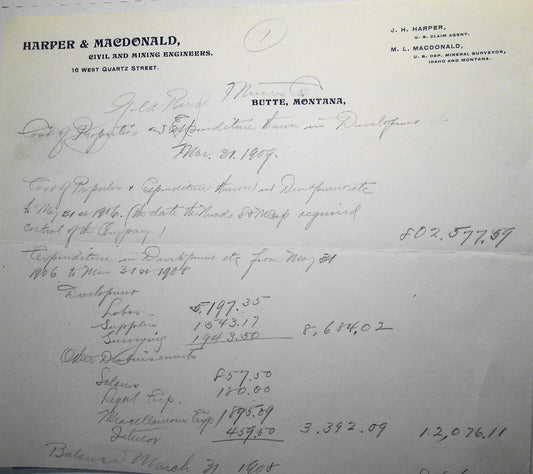 1
HARPER & MACDONALD,
CIVIL AND MINING ENGINEERS.
16 WEST QUARTZ STREET.
J. H. HARPER,
U. S. CLAIM AGENT.
M. L. MACDONALD,
U. S. DEP. MINERAL SURVEYOR,
IDAHO AND MONTANA.
Gold Reef Mining Co
BUTTE, MONTANA,
Cost of Properties and Expenditure thereon in Development
Mar. 31. 1909.
Cost of Properties & Expenditure thereon in Development etc
to May 31st 1906. (the date the acquired
control of the Company)
802,577.59
Expenditure in Development etc from May 31
1906 to Mar 31st 1908
Development
Labor 5197.35
Supplies 1543.17
Surveying 1943.50 8,684,02
Other Disbursements
Salaries 857.50
Legal Exp. 180.00
Miscellaneous Exp 1895.09
Interest 459.50 3.392.09 12,076.11
Balance March 31 1908